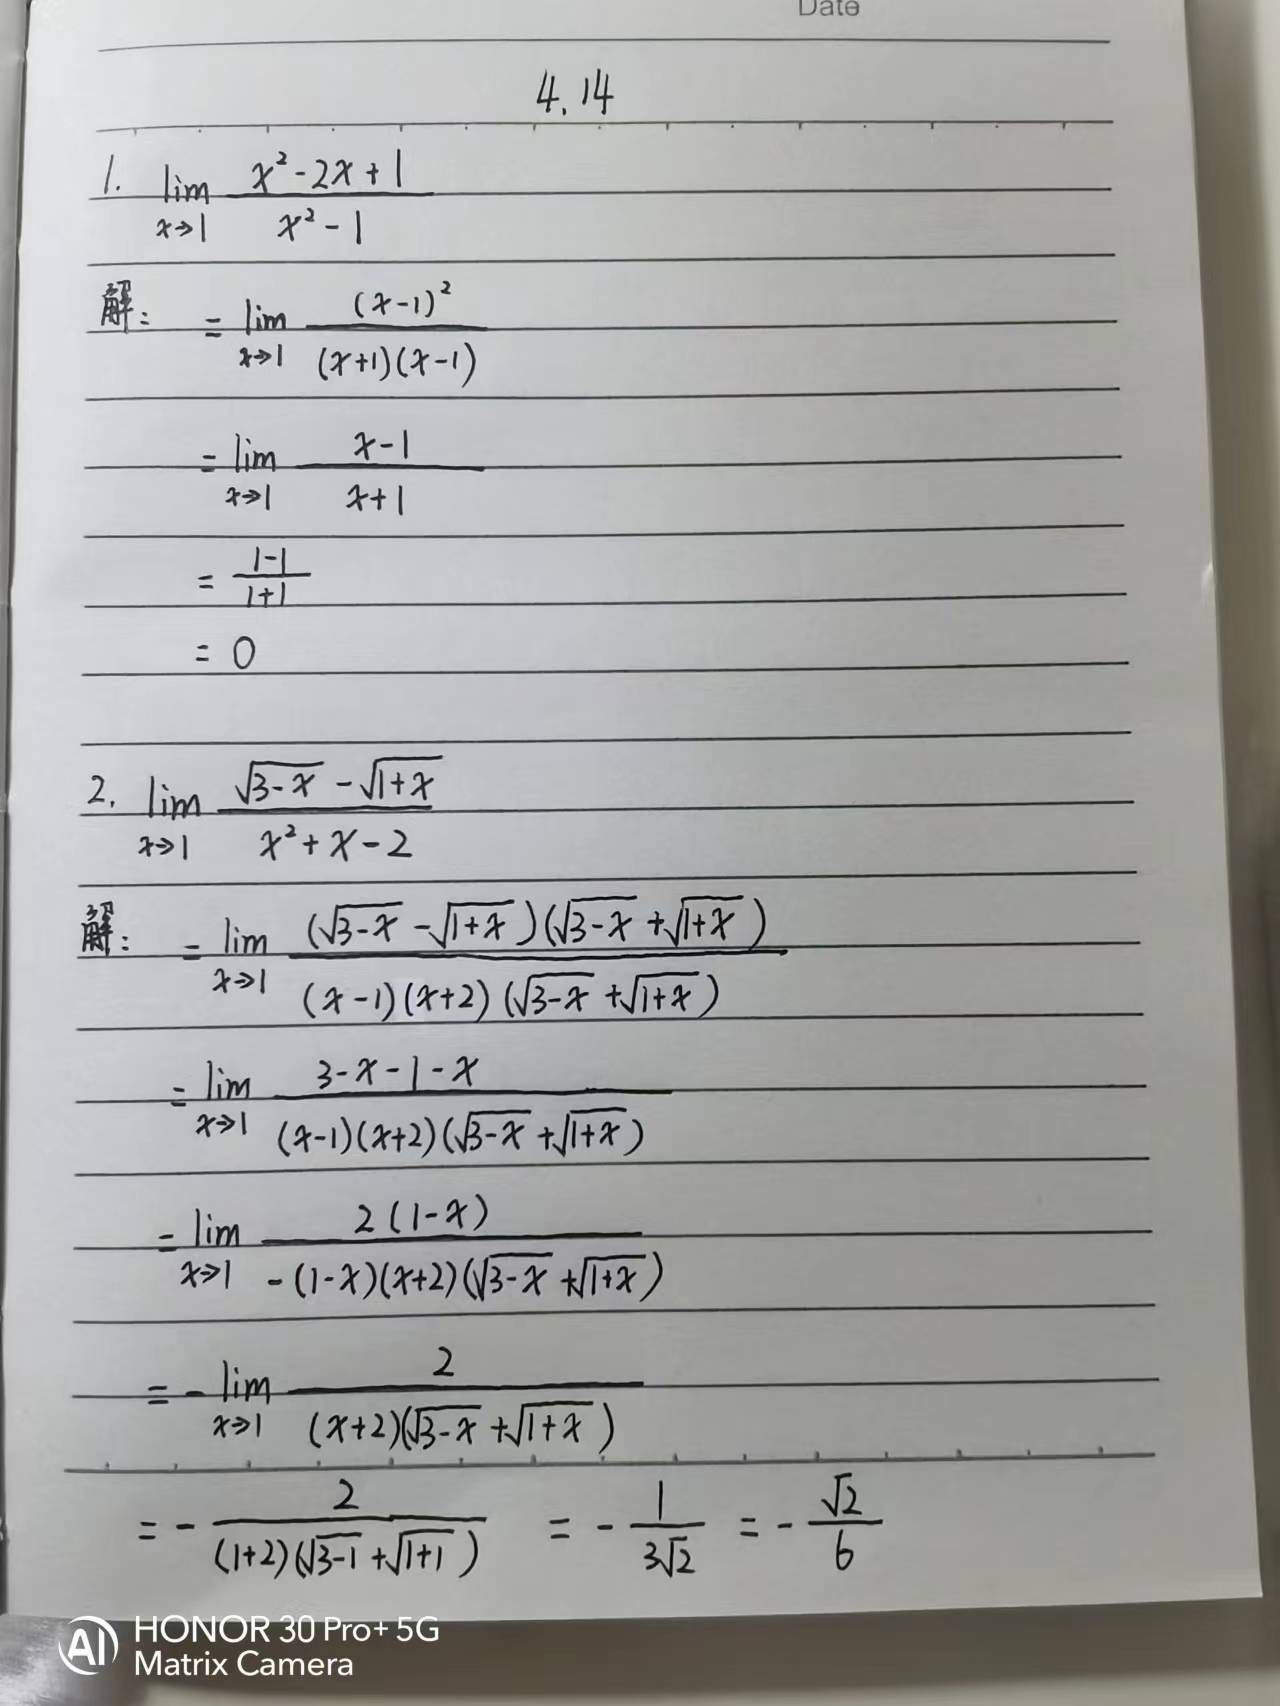 Date
4.14
1. lim x→1 (x² - 2x + 1)/(x² - 1)
解: = lim x→1 (x-1)²/((x+1)(x-1))
= lim x→1 (x-1)/(x+1)
= (1-1)/(1+1)
= 0
2. lim x→1 (√(3-x) - √(1+x))/(x² + x - 2)
解: = lim x→1 ((√(3-x) - √(1+x))(√(3-x) + √(1+x)))/((x-1)(x+2)(√(3-x) + √(1+x)))
= lim x→1 (3-x-1-x)/((x-1)(x+2)(√(3-x) + √(1+x)))
= lim x→1 2(1-x)/(-(1-x)(x+2)(√(3-x) + √(1+x)))
= - lim x→1 2/((x+2)(√(3-x) + √(1+x)))
= - 2/((1+2)(√(3-1) + √(1+1))) = - 1/(3√2) = - √2/6
AI HONOR 30 Pro+ 5G
Matrix Camera